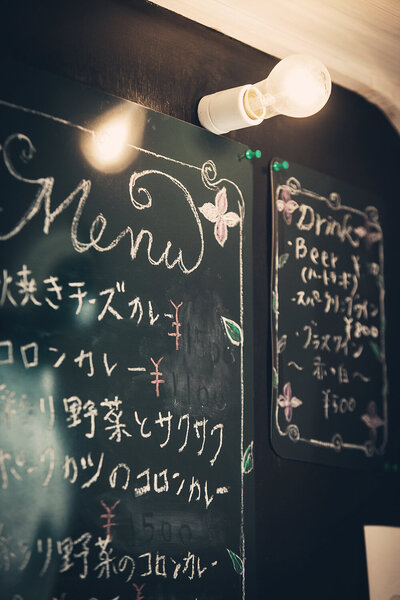 Menu
焼きチーズカレー ¥
コロンカレー ¥1100
彩り野菜とサクサク
ポークカツのコロンカレー
¥1500
彩り野菜のコロンカレー
Drink
・Beer
(ハートランド)
・スパークリングワイン
¥800
・グラスワイン
〜赤・白〜
¥500